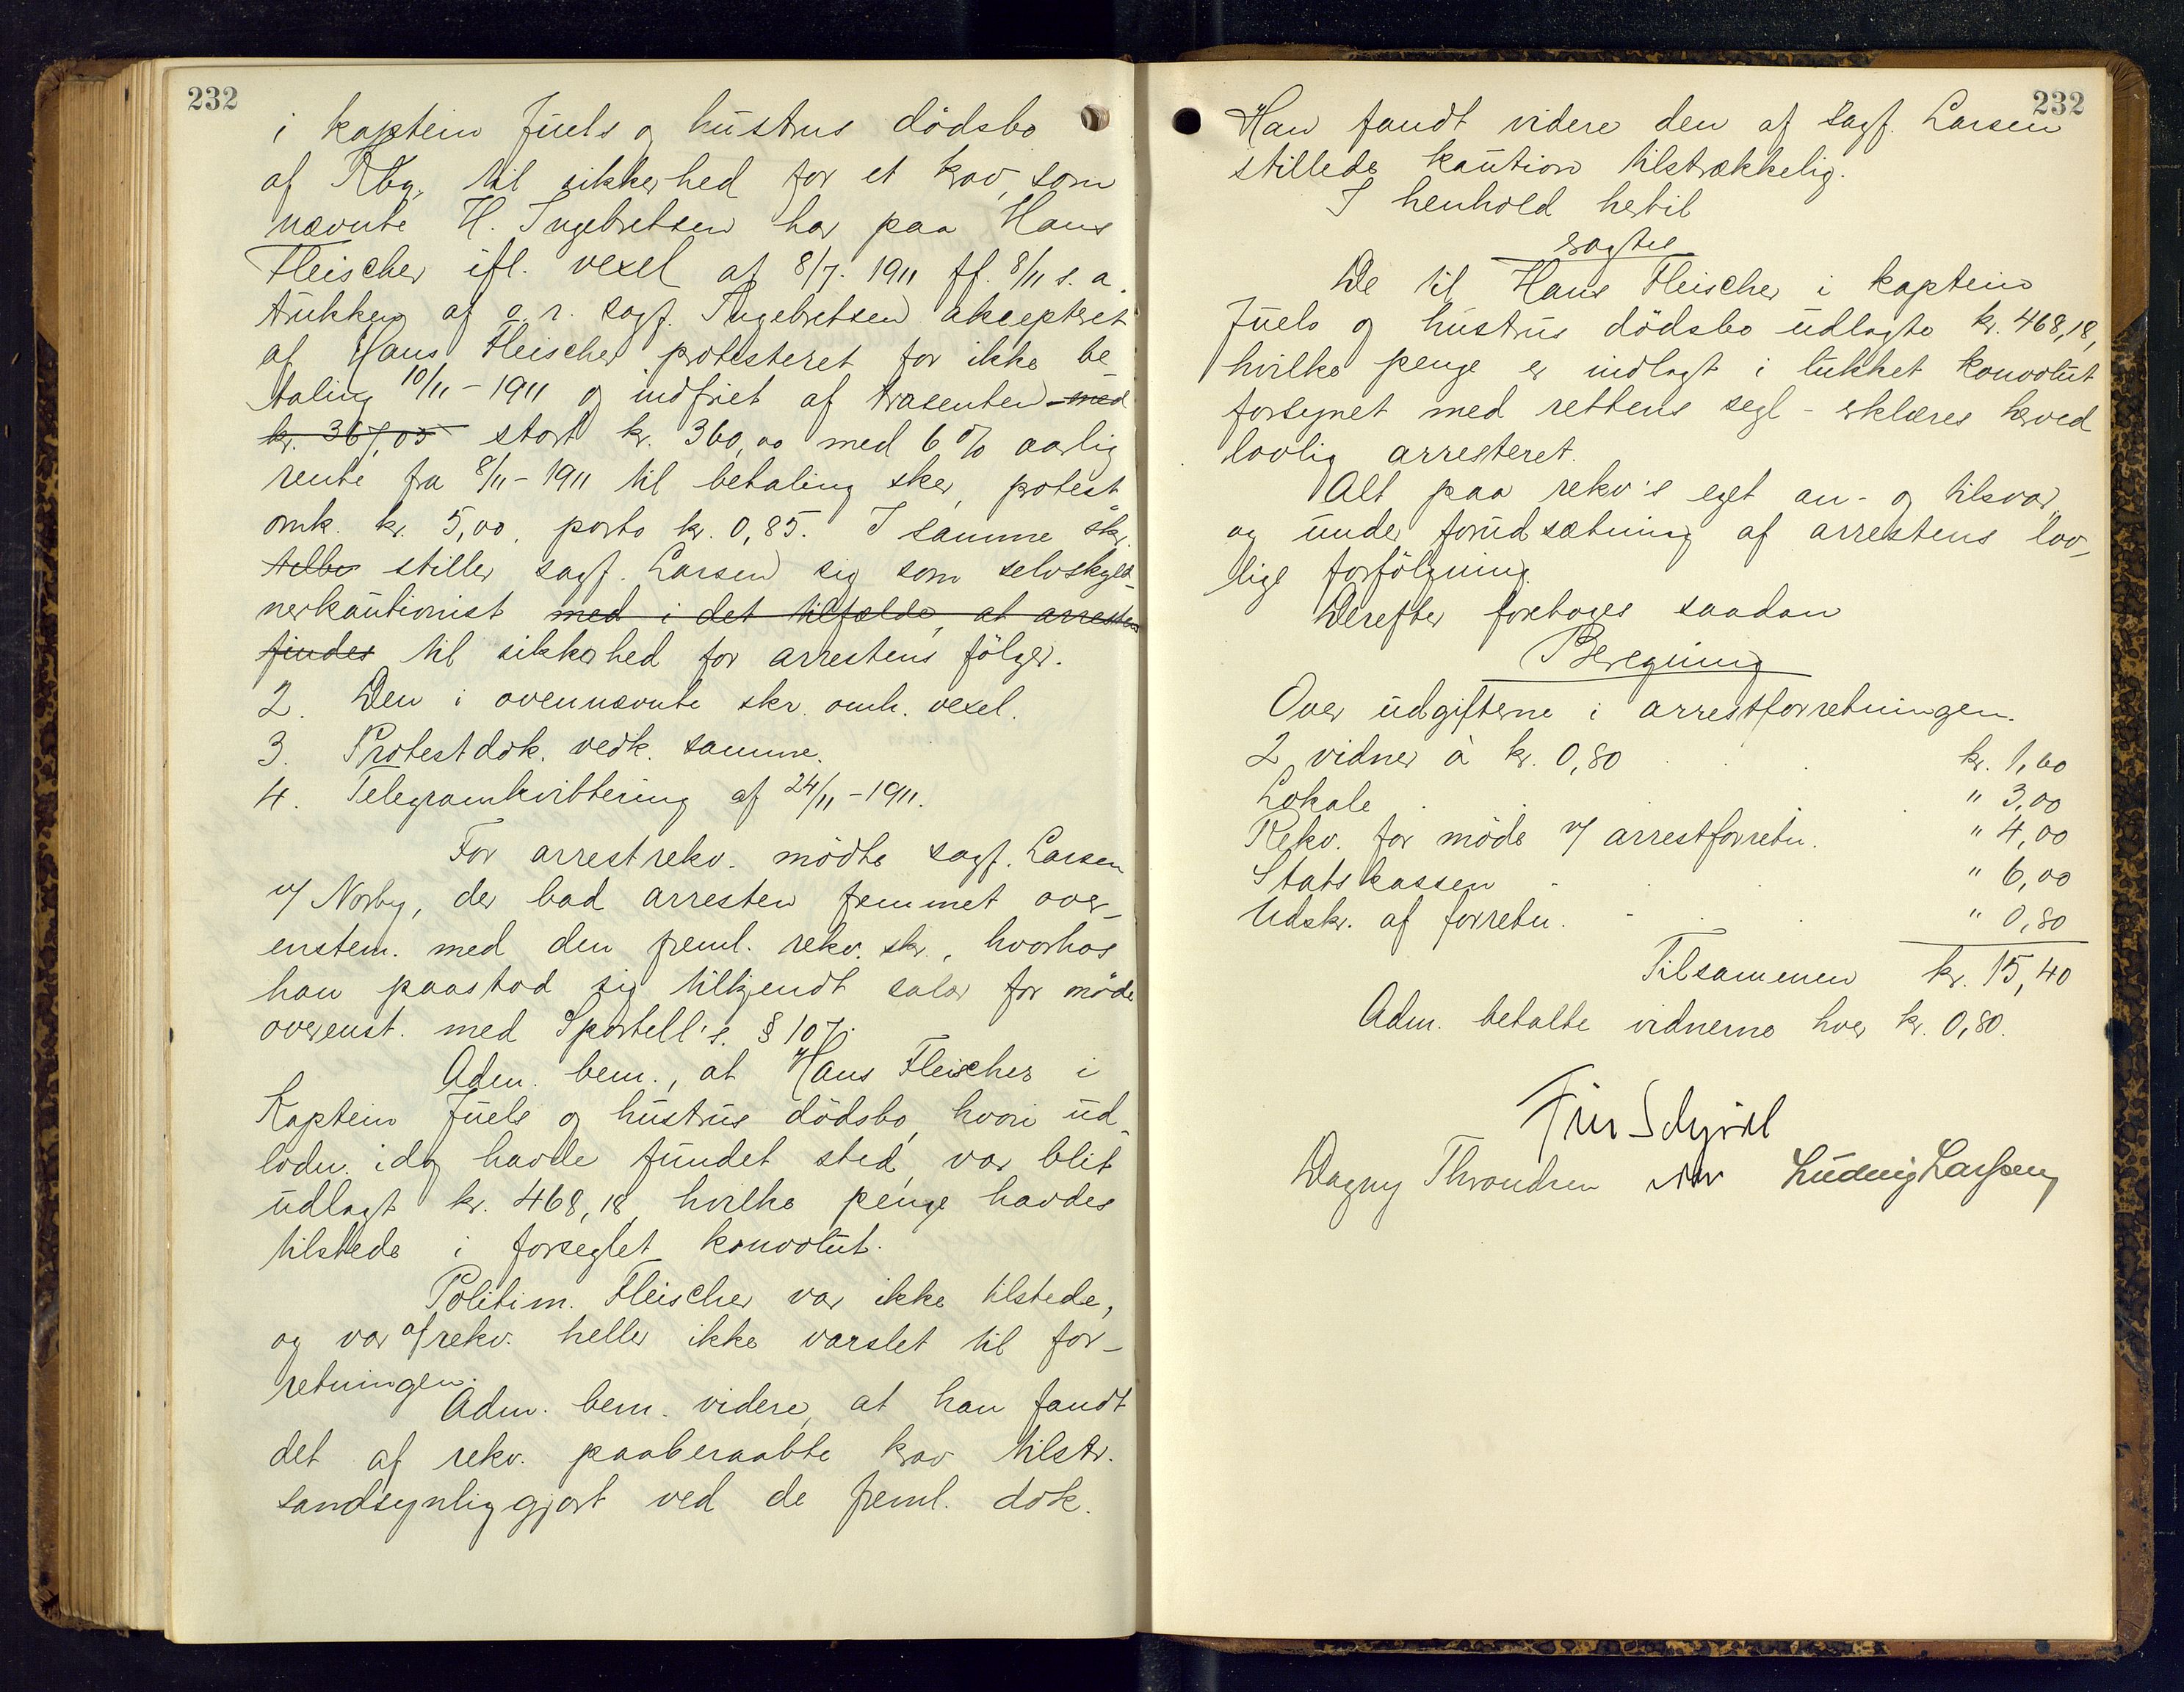 232
i kaptein Juels og hustrus dödsbo
af Kbg. til sikkerhed for et krav, som
nævnte H. Ingebretsen har paa Hans
Fleischer ifl. vexel af 8/7. 1911 ff. 8/11 s. a.
trukken af o. r. sagf. Ingebretsen akcepteret
af Hans Fleischer protesteret for ikke be-
taling 10/11 - 1911 og indfriet af trasenten med
kr. 367,05 stort kr. 360,00 med 6 % aarlig
rente fra 8/11 - 1911 til betaling sker, protest
omk. kr. 5,00, porto kr. 0,85. I samme skr.
stiller sagf. Larsen sig som selvskyld-
nerkautionist med i det tilfælde, at arresten
findes til sikkerhed for arrestens fölger.
2. Den i ovennævnte skr. omh. vexel.
3. Protestdok. vedk. samme.
4. Telegramkvittering af 24/11 - 1911.
For arrestrekv. mödte sagf. Larsen
v/ Norby, der bad arresten fremmet over-
enstem. med den freml. rekv. skr., hvorhos
han paastod sig tilkjendt salær for möde
overenst. med Sportell's. § 107.
Adm. bem., at Hans Fleischer i
Kaptein Juels og hustrus dödsbo, hvori ud-
lodn. idag havde fundet sted, var blit
udlagt kr. 468,18, hvilke penge havdes
tilstede i forseglet konvolut.
Politim. Fleischer var ikke tilstede,
og var af rekv. heller ikke varslet til for-
retningen.
Adm. bem. videre, at han fandt
det af rekv. paaberaabte krav tilstr.
sandsynliggjort ved de freml. dok.
232
Han fandt videre den af sagf. Larsen
stillede kaution tilstrækkelig.
I henhold hertil
sagtes
De til Hans Fleischer i kaptein
Juels og hustrus dödsbo udlagte kr. 468,18,
hvilke penge er indlagt i lukket konvolut
forsynet med rettens segl - erklæres herved
lovlig arresteret.
Alt paa rekv's eget an- og tilsvar
og under forudsætning af arrestens lov-
lige forfölgning.
Derefter foretoges saadan
Beregning
Over udgifterne i arrestforretningen.
2 vidner à kr. 0,80 kr. 1,60
Lokale " 3,00
Rekv. for möde v/ arrestforretn. " 4,00
Statskassen " 6,00
Udskr. af forretn. " 0,80
Tilsammen kr. 15,40
Adm. betalte vidnerne hver kr. 0,80.
Dagny Throndsen Ludvig Larssen